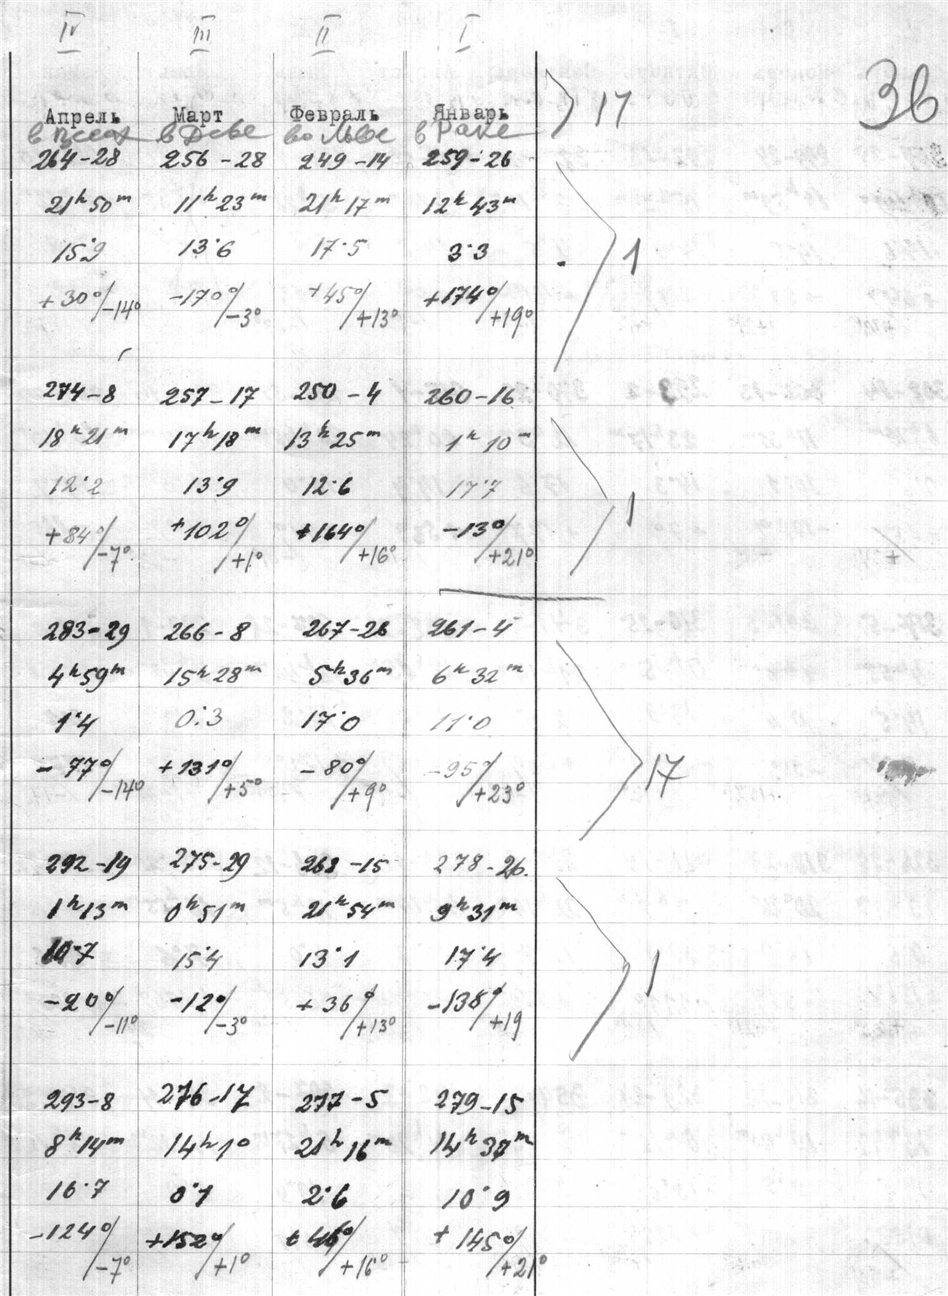 IV III II I
36
Апрель Март Февраль Январь
в Деве во Льве в Раке
17
264-28 256-28 249-14 259-26
21ʰ50ᵐ 11ʰ23ᵐ 21ʰ17ᵐ 12ʰ43ᵐ
15·9 13·6 17·5 3·3
1
+30°/-14° -170°/-3° +45°/+13° +174°/+19°
274-8 257-17 250-4 260-16
18ʰ21ᵐ 17ʰ18ᵐ 13ʰ25ᵐ 1ʰ10ᵐ
12·2 13·9 12·6 17·7
1
+84°/-7° +102°/+1° +164°/+16° -13°/+21°
283-29 266-8 267-26 261-4
4ʰ59ᵐ 15ʰ28ᵐ 5ʰ36ᵐ 6ʰ32ᵐ
1·4 0·3 17·0 11·0
-77°/-14° +131°/+5° -80°/+9° -95°/+23°
17
292-19 275-29 268-15 278-26
1ʰ13ᵐ 0ʰ51ᵐ 21ʰ54ᵐ 9ʰ31ᵐ
10·7 15·4 13·1 17·4
1
-20°/-11° -12°/-3° +36°/+13° -138°/+19
293-8 276-17 277-5 279-15
8ʰ14ᵐ 14ʰ1° 21ʰ16ᵐ 14ʰ38ᵐ
16·7 0·1 2·6 10·9
-124°/-7° +152°/+1° +46°/+16° +145°/+21°